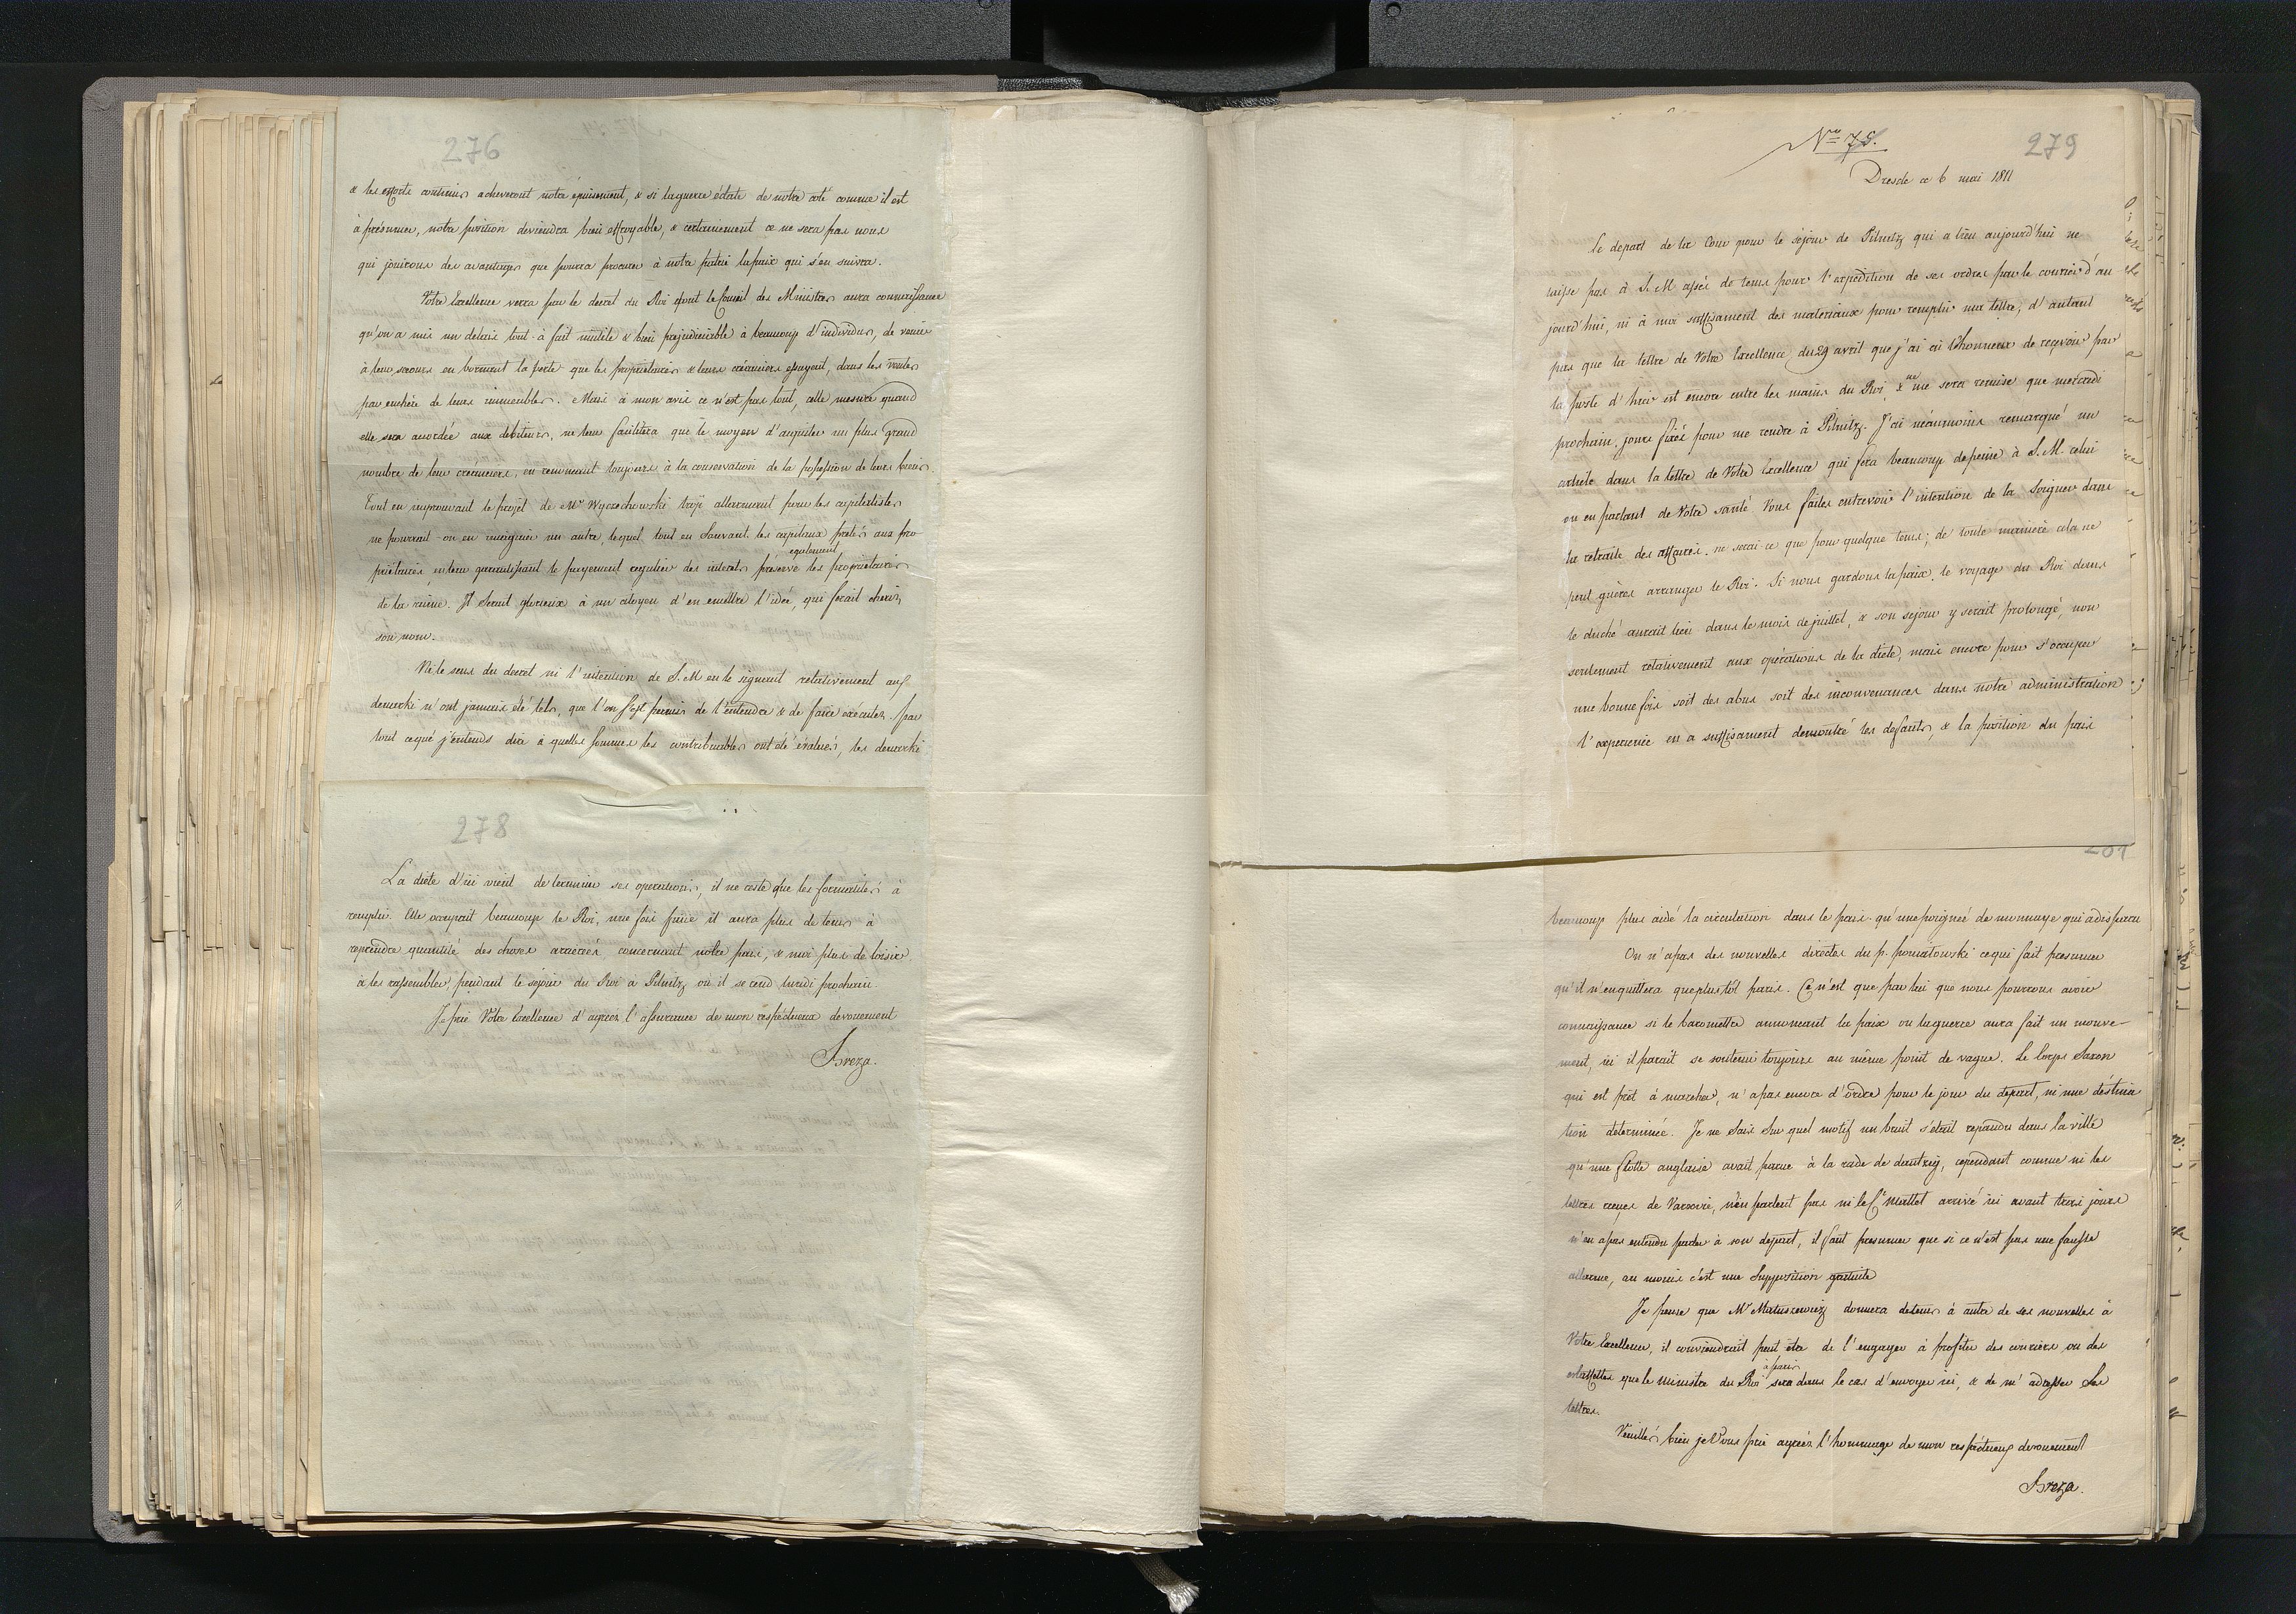 276
& les efforts continus acheveront notre épuisement, & si la guerre éclate de notre coté comme il est
à présumer, notre position deviendra bien effroyable, & certainement ce ne sera pas nous
qui jouirons des avantages que pourra procurer à notre patrie la paix qui s'en suivra.
Votre Excellence verra par le decret du Roi dont le Conseil des Ministres aura connaissance
qu'on a mis un delais tout-à fait inutile & bien prejudiciable à beaucoup d'individus, de venir
à leur secours en bornant la perte que les proprietaires & leurs créanciers essuyent, dans les ventes
par enchère de leurs immeubles. Mais à mon avis ce n'est pas tout, cette mesure quand
elle sera accordée aux debiteurs, ne leur facilitera que le moyen d'acquiter un plus grand
nombre de leur créanciers, en renonçant toujours à la conservation de la possession de leurs biens.
Tout en improuvant le projet de Mr Wyczechowski trop allarmant pour les capitalistes
ne pourrait-on en imaginer un autre, lequel tout en Sauvant les capitaux pretés aux pro-
priétaires, en leur garantissant le payement regulier des interets préserve egalement les propriétaires
de la ruine. Il Serait glorieux à un citoyen d'en emettre l'idée, qui ferait cherir
son nom.
Ni le sens du decret ni l'intention de S. M en le signant relativement aux
dworki n'ont jamais été tels, que l'on s'est permis de l'entendre & de faire exécuter. par
tout ce que j'entends dire à quelles sommes les contribuables ont été évalués, les dworki
278
La diete d'ici vient de terminer ses operations, il ne reste que les formalités à
remplir. Elle occupait beaucoup le Roi, une fois finie il aura plus de tems à
reprendre quantité des choses arriérées concernant notre pais, & moi plus de loisir
à les rassembler, pendant le séjour du Roi a Pilnitz où il se rend lundi prochain.
Je prie Votre Excellence d'agréer l'assurance de mon respectueux devouement
Breza.
No 75.
279
Dresde ce 6 mai 1811
Le depart de la Cour pour le séjour de Pilnitz qui a lieu aujourd'hui ne
laisse pas à S. M assés de tems pour l'expedition de ses ordres par le courier d'au
jourd'hui, ni à moi suffisament des materiaux pour remplir ma lettre, d'autant
pas que la lettre de Votre Excellence du 29 avril que j'ai eu l'honneur de reçevoir par
la poste d'hier est encore entre les mains du Roi, & ne me sera remise que mercredi
prochain, jours fixés pour me rendre à Pilnitz. J'ai néanmoins remarqué un
article dans la lettre de Votre Excellence qui fera beaucoup de peine à S. M. celui
ou en parlant de Votre santé Vous faites entrevoir l'intention de la Soigner dans
la retraite des affaires. ne serai-ce que pour quelque tems; de toute maniere cela ne
peut guères arranger le Roi. Si nous gardons la paix, le voyage du Roi dans
le duché aurait lieu dans le mois de juillet, & son sejour y serait prolongé, non
seulement relativement aux opérations de la diete, mais encore pour s'occuper
une bonne fois soit des abus soit des inconvenances dans notre administration
l'experience en a suffisament demontré les defauts, & la position du pais
beaucoup plus aidé la circulation dans le pais. qu'une poignée de monnaye qui a disparu
On n'a pas des nouvelles directes du p. poniatowski ce qui fait presumer
qu'il n'en quittera que plus tôt paris. Ce n'est que par lui que nous pourrons avoir
connaissance si le barometre annoncant la paix ou la guerre aura fait un mouve-
ment, ici il parait se soutenir toujours au même point de vague. Le Corps Saxon
qui est prêt à marcher, n'a pas encore d'ordre pour le jour du depart, ni une destina
tion determinée. Je ne Sais Sur quel motif un bruit s'était repandu dans la ville
qu'une flotte anglaise avait parue à la rade de dantzig, cependant comme ni les
lettres reçues de Varsovie, n'en parlent pas ni le C. Mallet arrivé ici avant trois jours
n'en a pas entendu parler à son depart, il faut presumer que si ce n'est pas une fausse
allarme, au moins c'est une Supposition gratuite
Je pense que Mr Matuszewicz donnera detems à autre de ses nouvelles à
Votre Excellence, il conviendrait peut être de l'engager à profiter des couriers ou des
estaffettes que le Ministre du Roi à paris sera dans le cas d'envoyer ici, & de m'adresser Ses
lettres.
Veuillés bien je Vous prie agréer l'hommage de mon respectueux devouement
Breza.